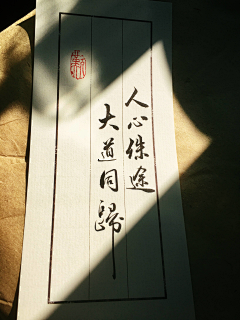 人心殊途
大道同歸